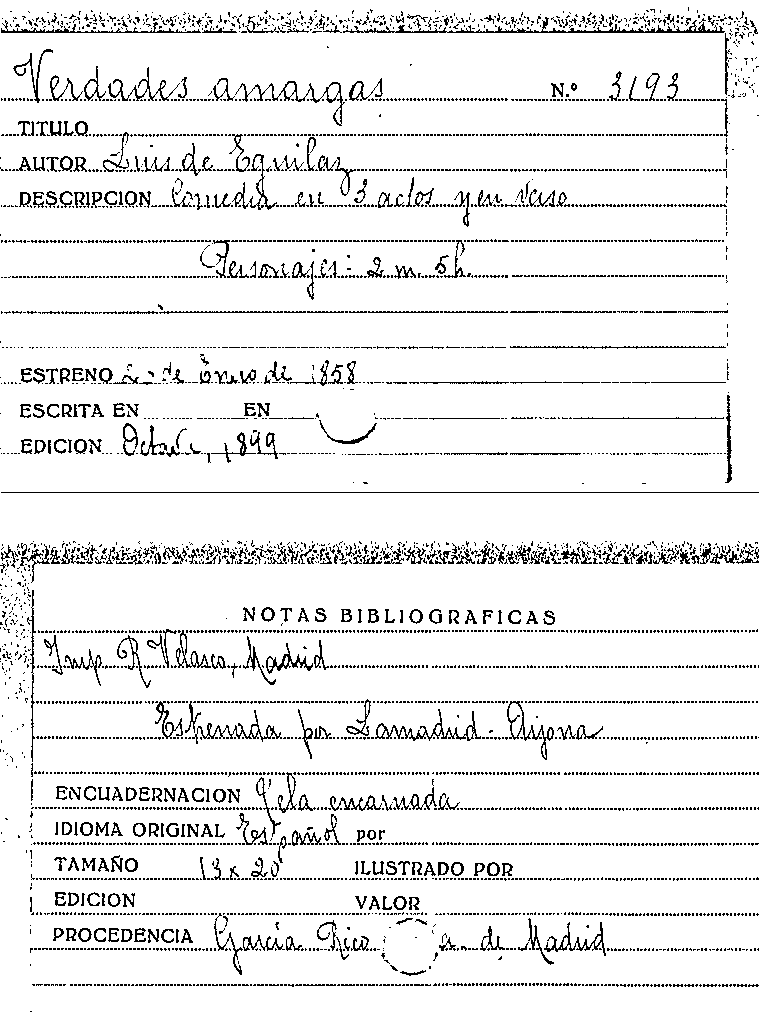 Verdades amargas N.º 3193
TITULO
AUTOR Luis de Eguilaz
DESCRIPCION Comedia en 3 actos y en verso
Personajes: 2 m. 5 h.
ESTRENO 2 de Enero de 1858
ESCRITA EN EN
EDICION Octava, 1899
NOTAS BIBLIOGRAFICAS
Imp. R Velasco, Madrid
Estrenada por Lamadrid - Arjona
ENCUADERNACION Tela encarnada
IDIOMA ORIGINAL Español por
TAMAÑO 13 x 20 ILUSTRADO POR
EDICION VALOR
PROCEDENCIA García Rico a. de Madrid